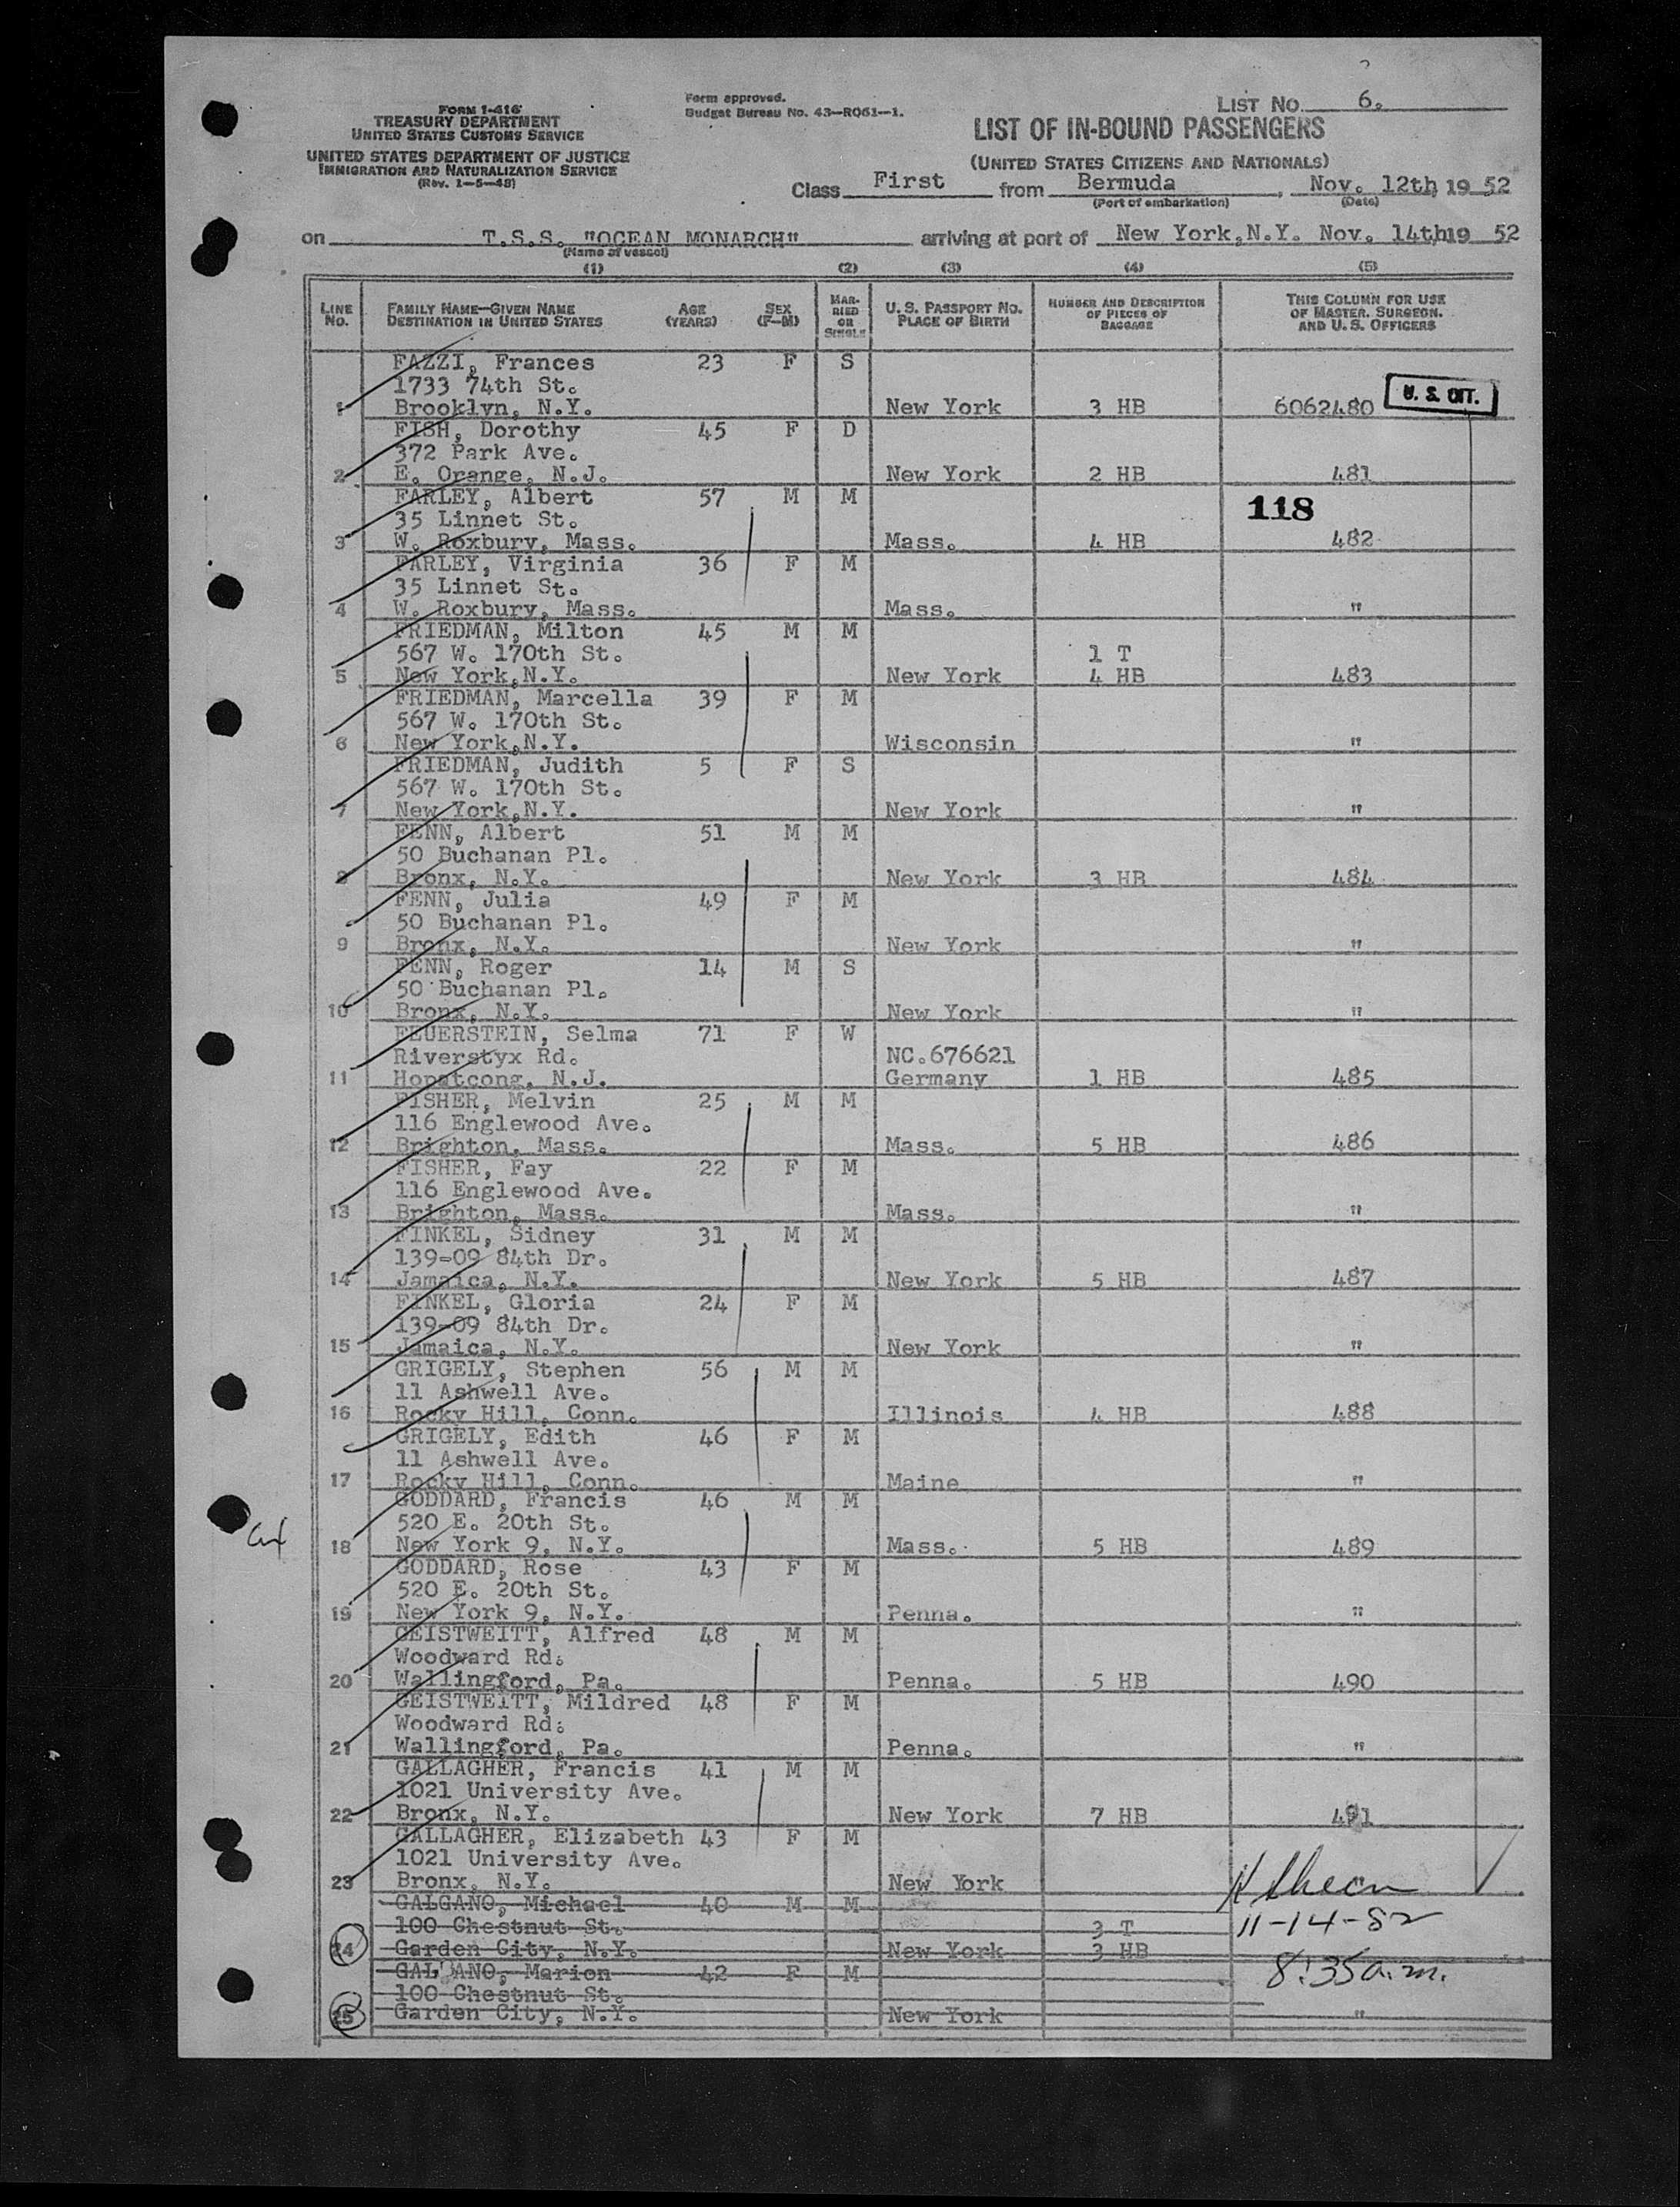 FORM I-416
TREASURY DEPARTMENT
UNITED STATES CUSTOMS SERVICE
UNITED STATES DEPARTMENT OF JUSTICE
IMMIGRATION AND NATURALIZATION SERVICE
(Rev. 1-5-48)
Form approved.
Budget Bureau No. 43-R061-1.
LIST NO. 6.
LIST OF IN-BOUND PASSENGERS
(UNITED STATES CITIZENS AND NATIONALS)
Class First from Bermuda, Nov. 12th, 1952
(Port of embarkation) (Date)
on T.S.S. "OCEAN MONARCH" arriving at port of New York, N.Y. Nov. 14th 19 52
(Name of vessel)
(1) (2) (3) (4) (5)
LINE NO. FAMILY NAME—GIVEN NAME DESTINATION IN UNITED STATES AGE (YEARS) SEX (F-M) MARRIED OR SINGLE U.S. PASSPORT NO. PLACE OF BIRTH NUMBER AND DESCRIPTION OF PIECES OF BAGGAGE THIS COLUMN FOR USE OF MASTER, SURGEON, AND U.S. OFFICERS
FAZZI, Frances 23 F S
1733 74th St.
1 Brooklyn, N.Y. New York 3 HB 6062480 U. S. CIT.
FISH, Dorothy 45 F D
372 Park Ave.
2 E. Orange, N.J. New York 2 HB 481
FARLEY, Albert 57 M M 118
35 Linnet St.
3 W. Roxbury, Mass. Mass. 4 HB 482
FARLEY, Virginia 36 F M
35 Linnet St.
4 W. Roxbury, Mass. Mass. "
FRIEDMAN, Milton 45 M M
567 W. 170th St. 1 T
5 New York, N.Y. New York 4 HB 483
FRIEDMAN, Marcella 39 F M
567 W. 170th St.
6 New York, N.Y. Wisconsin "
FRIEDMAN, Judith 5 F S
567 W. 170th St.
7 New York, N.Y. New York "
FENN, Albert 51 M M
50 Buchanan Pl.
8 Bronx, N.Y. New York 3 HB 484
FENN, Julia 49 F M
50 Buchanan Pl.
9 Bronx, N.Y. New York "
FENN, Roger 14 M S
50 Buchanan Pl.
10 Bronx, N.Y. New York "
FEUERSTEIN, Selma 71 F W
Riverstyx Rd. NC.676621
11 Hopatcong, N.J. Germany 1 HB 485
FISHER, Melvin 25 M M
116 Englewood Ave.
12 Brighton, Mass. Mass. 5 HB 486
FISHER, Fay 22 F M
116 Englewood Ave.
13 Brighton, Mass. Mass. "
FINKEL, Sidney 31 M M
139-09 84th Dr.
14 Jamaica, N.Y. New York 5 HB 487
FINKEL, Gloria 24 F M
139-09 84th Dr.
15 Jamaica, N.Y. New York "
GRIGELY, Stephen 56 M M
11 Ashwell Ave.
16 Rocky Hill, Conn. Illinois 4 HB 488
GRIGELY, Edith 46 F M
11 Ashwell Ave.
17 Rocky Hill, Conn. Maine "
GODDARD, Francis 46 M M
520 E. 20th St.
18 New York 9, N.Y. Mass. 5 HB 489
GODDARD, Rose 43 F M
520 E. 20th St.
19 New York 9, N.Y. Penna. "
GEISTWEITT, Alfred 48 M M
Woodward Rd.
20 Wallingford, Pa. Penna. 5 HB 490
GEISTWEITT, Mildred 48 F M
Woodward Rd.
21 Wallingford, Pa. Penna. "
GALLAGHER, Francis 41 M M
1021 University Ave.
22 Bronx, N.Y. New York 7 HB 491
GALLAGHER, Elizabeth 43 F M
1021 University Ave.
23 Bronx, N.Y. New York "
GALGANO, Michael 40 M M
100 Chestnut St. 3 T 11-14-52
24 Garden City, N.Y. New York 3 HB
GALGANO, Marion 42 F M 8:35 a.m.
100 Chestnut St.
25 Garden City, N.Y. New York "